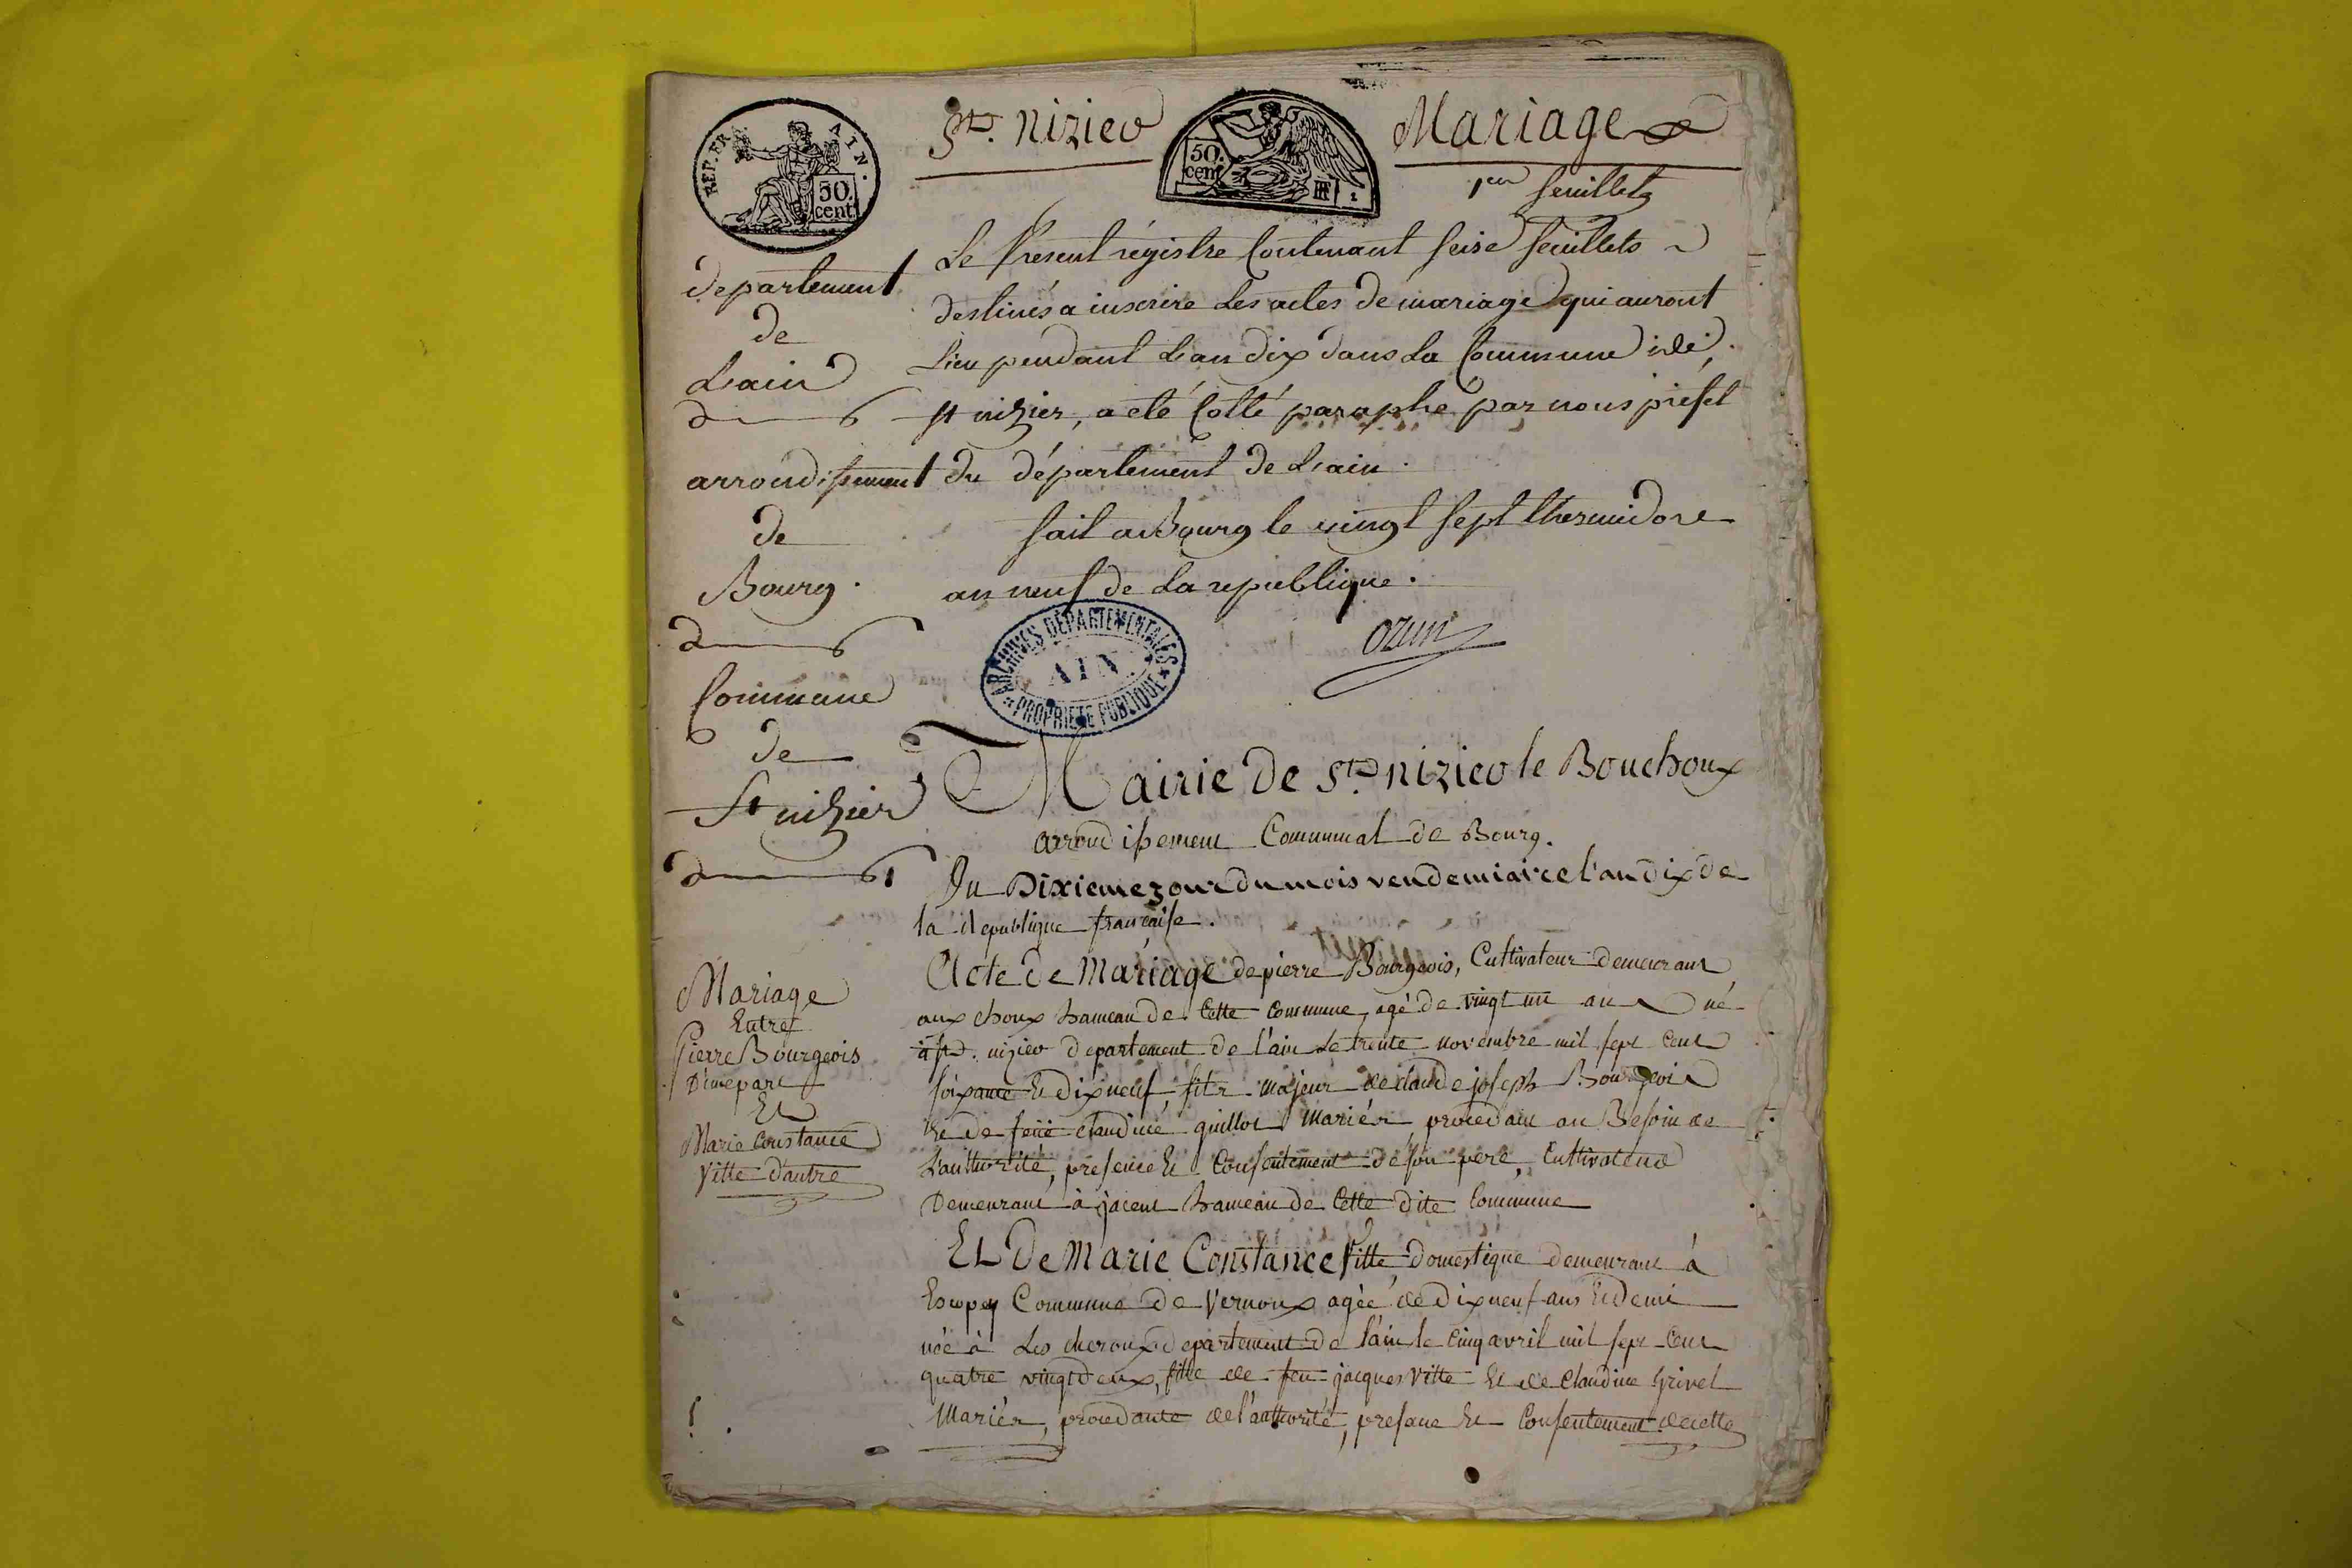 REP. FRA AIN.
50. cent.
St. Nizier
50. cent.
RF
Mariage
1er feuillet
Département
de
Lain
arrondissement
de
Bourg.
Commune
de
St nizier
Le Present régistre Contenant seise feuillets
destinés a inscrire Les actes de mariage qui auront
Lieu pendant L'an dix dans La Commune de
st nizier, a eté Cotté paraphé par nous préfet
du département de Lain.
fait a Bourg le vingt sept thermidore
an neuf de La republique.
ozun
ARCHIVES DÉPARTEMENTALES
AIN
PROPRIÉTÉ PUBLIQUE
Mairie de St. nizier le Bouchoux
arrondissement Communal de Bourg.
Du Dixieme jour du mois vendemiaire l'an dix de
la Republique française.
Mariage
Entre
Pierre Bourgeois
D'une part
Et
Marie Constance
Vitte d'autre
Acte de Mariage de pierre Bourgeois, Cultivateur demeurant
aux choux hameau de Cette Commune, agé de vingt un an né
à st. nizier departement de l'ain Le trente novembre mil sept cent
soixante et dix neuf, fils majeur de claude joseph Bourgeois
Et de feüe claudine guillot Mariés procedant au Besoin de
L'authorité, presence Et Consentement de son pere, Cultivateur
Demeurant à jacent hameau de Cette dite Commune
Et De Marie Constance Vitte, domestique demeurant à
Escopey Commune de Vernoux agée de dix neuf ans Et demi
née à Les cheroux departement de l'ain le Cinq avril mil sept Cent
quatre vingt deux, fille de feu jacques Vitte Et de Claudine Grivel
Mariés, procedante de l'authorité, presance Et Consentement de cette